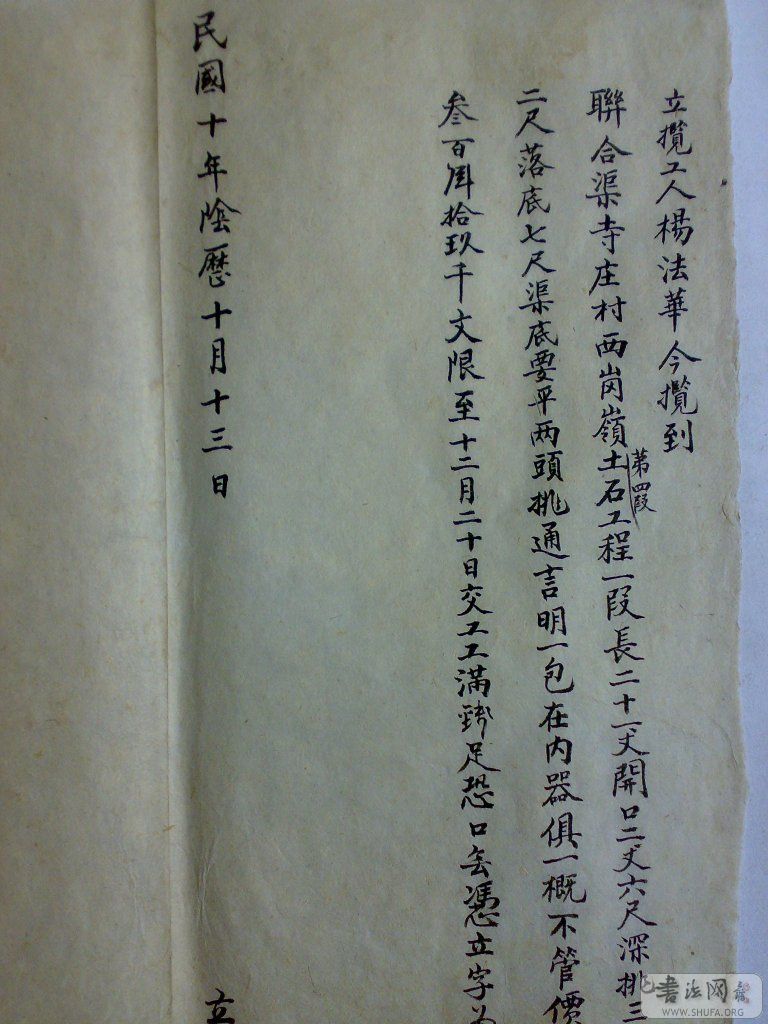 立攬工人楊法華今攬到
聯合渠寺庄村西崗嶺土石工程一段長二十一丈開口二丈六尺深挑三
第四段
二尺落底七尺渠底要平两頭挑通言明一包在内器俱一概不管價
叁百肆拾玖千文限至十二月二十日交工工滿錢足恐口無憑立字为
民國十年陰歷十月十三日
立
書法网
WWW.SHUFA.ORG